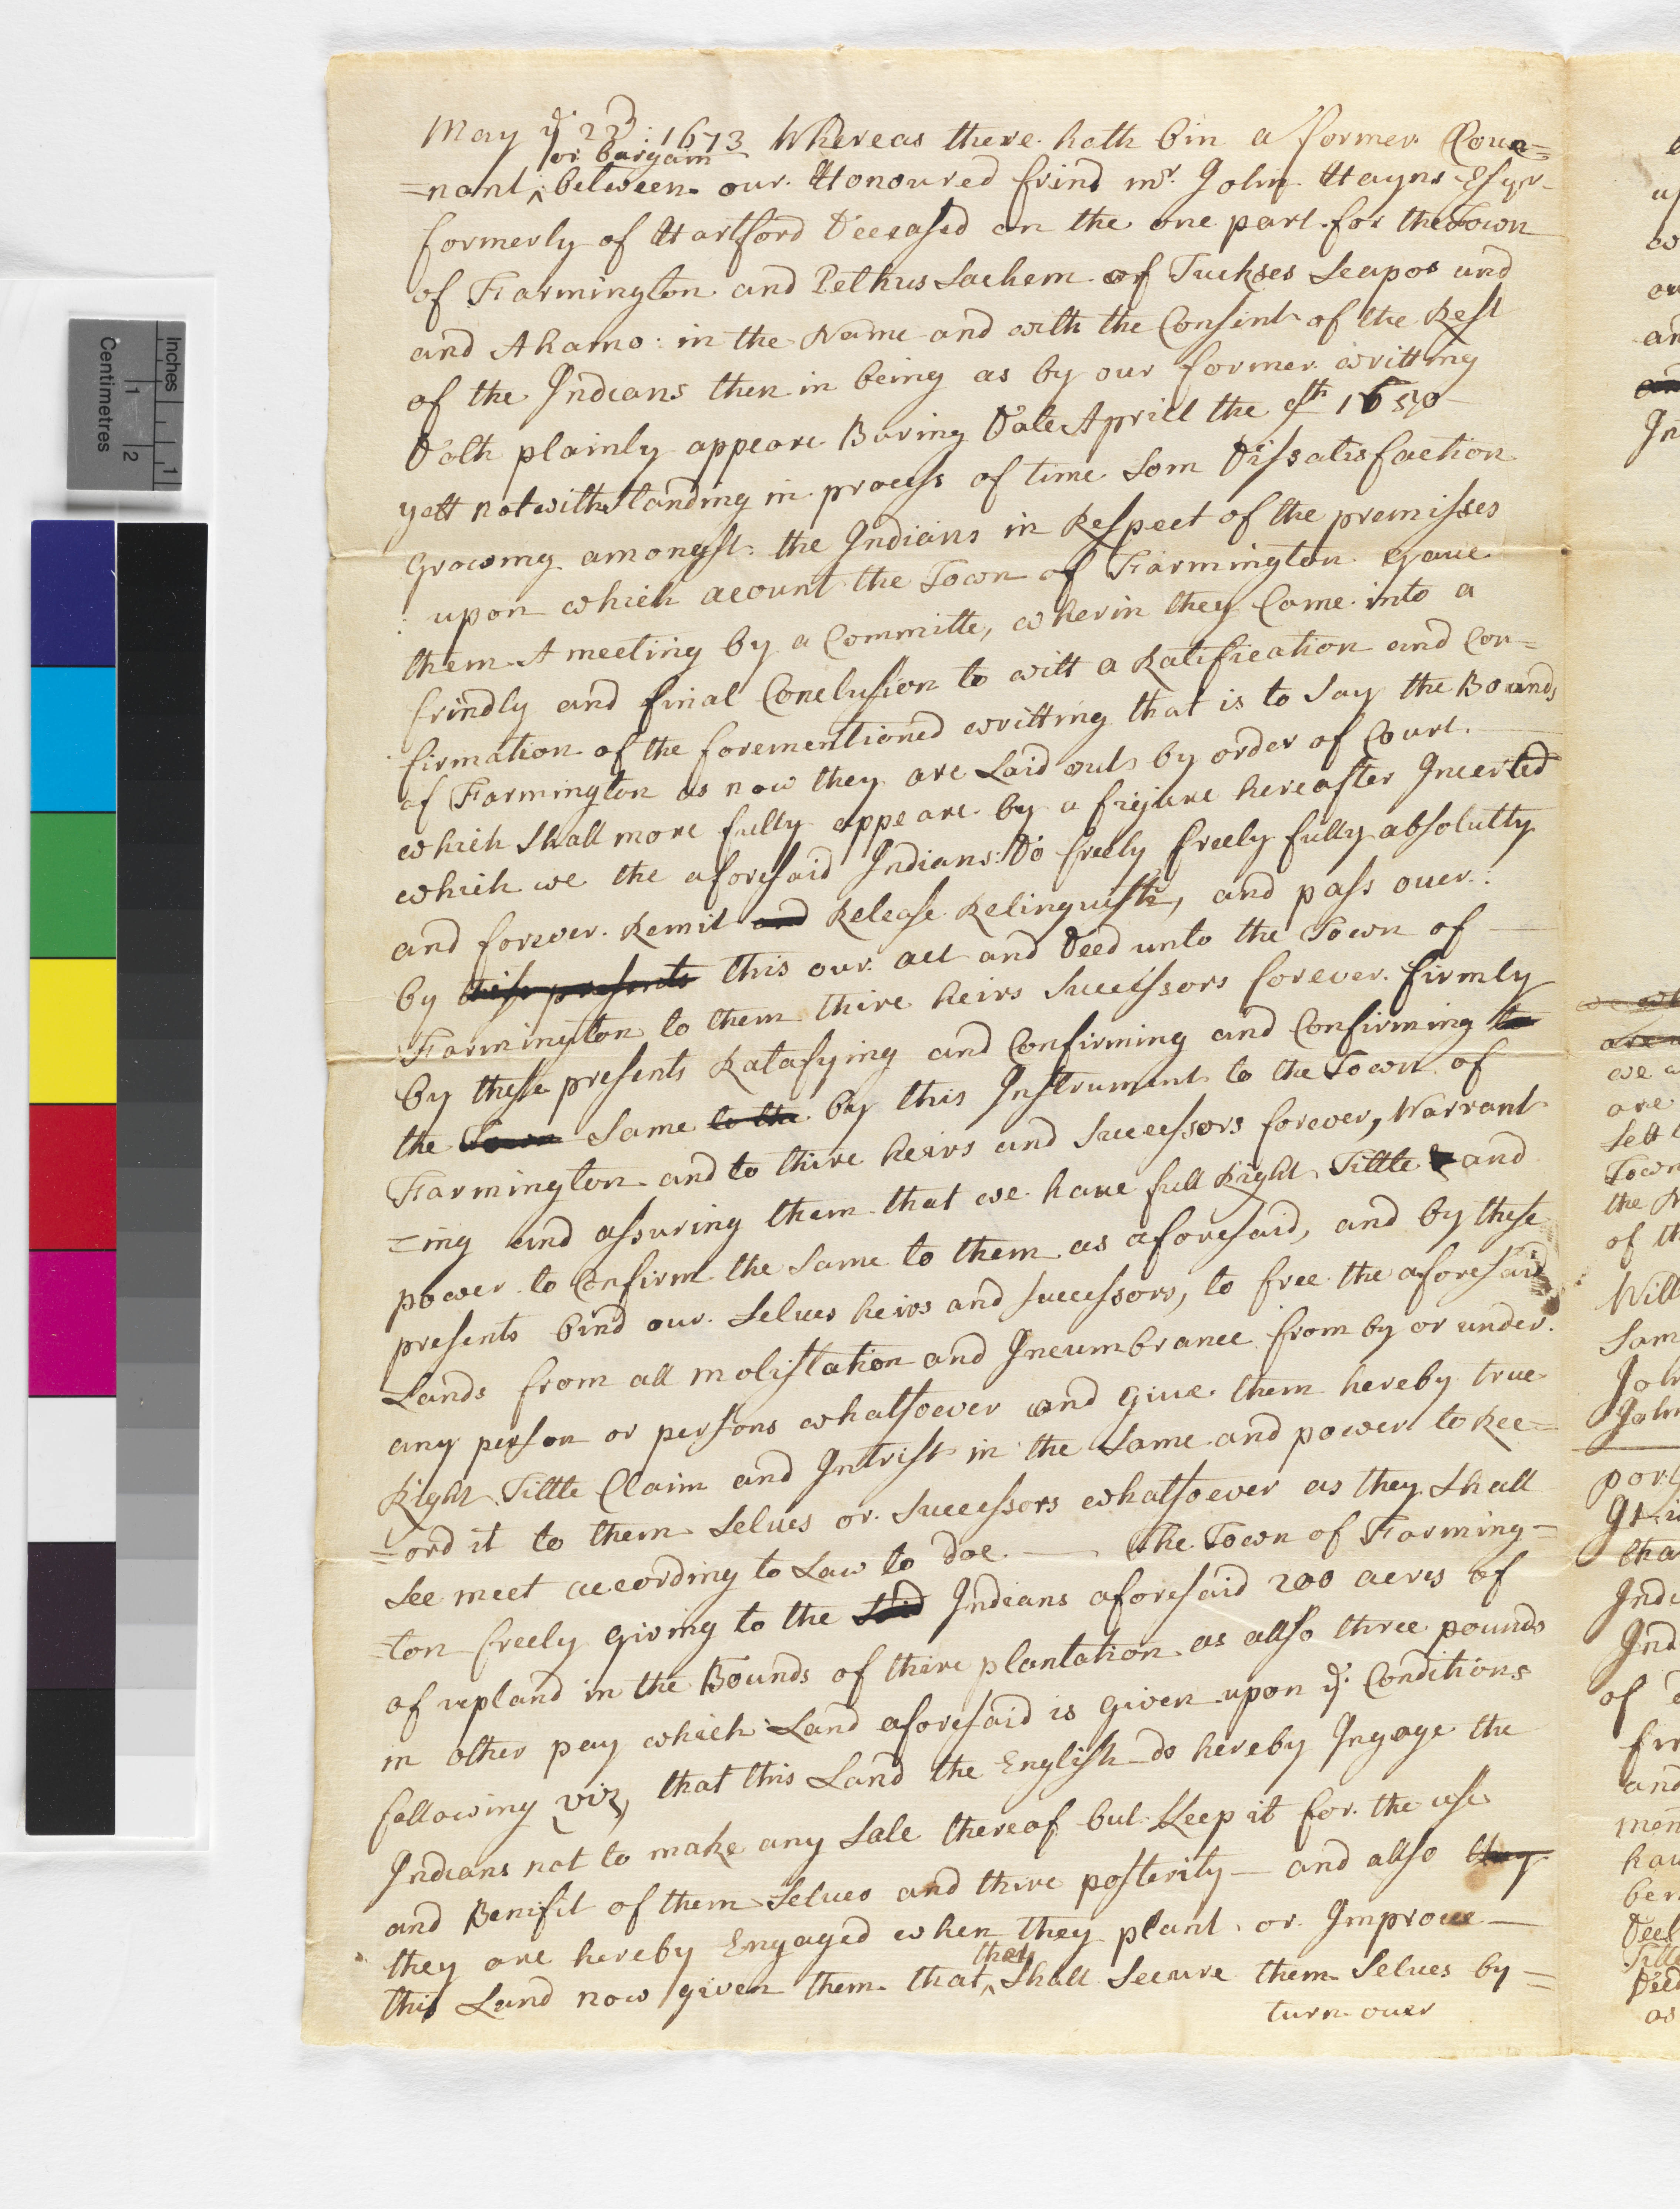 May ye 22d: 1673 Whereas there hath bin a former Coue=
or bargain
=nant ^ between our Honoured frind mr. John Hayns Esqr
formerly of Hartford Deceased on the one part for the Town
of Farmington and Pethus Sachem of Tuckses Seapos and
and Ahamo: in the Name and with the Consint of the Rest
of the Indians then in being as by our former writting
Doth plainly appeare Baring Date Aprill the 9th 1650
yett notwithstanding in process of time Som Dissatisfaction
growing amongst the Indians in Respect of the premisses
upon which acount the Town of Farmington gaue
them A meeting by a Committe, wherin they Come into a
frindly and final Conclusion to witt a Ratification and Con=
firmation of the forementioned writting that is to Say the Bounds
of Farmington as now they are Laid out by order of Court.
which Shall more fully appeare by a figure hereafter Incerted
which we the aforesaid Indians Do freely freely fully absolutty
and forever Remit and Release Relinquish, and pass ouer:
by these presents this our act and Deed unto the Town of
Farmington to them thire heirs Successors forever firmly
by these presents Ratafying and Confirming and Confirming to
the Town Same to the by this Instrument to the Town of
Farmington and to thire heirs and Successors forever, Warrant
=ing and assuring them that we haue full Right Tittle and
power to Confirm the Same to them as aforesaid, and by these
presents bind our Selues heirs and Successors, to free the aforesaid
Lands from all molistation and Incumbrance from by or under
any person or persons whatsoever and giue them hereby true
Right Tittle Claim and Intrist in the Same and power to Rec=
=ord it to them Selues or Successors whatsoever as they Shall
See meet according to Law to doe. — The Town of Farming=
=ton freely giving to the Said Indians aforesaid 200 acres of
of upland in the Bounds of thire plantation as allso three pounds
in other pay which Land aforesaid is given upon ye Conditions
following viz, that this Land the English do hereby Ingage the
Indians not to make any Sale thereof but Keep it for the use
and Benifit of them Selues and thire posterity — and allso they
they are hereby Engaged when they plant or Improue —
they
this Land now given them that ^ Shall Secure them Selues by =
turn ouer